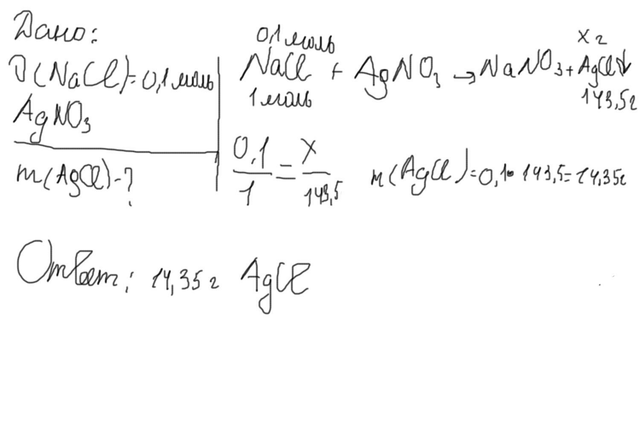 Дано:
ν(NaCl)=0,1 моль
AgNO₃
m(AgCl)-?
0,1 моль x г
NaCl + AgNO₃ → NaNO₃ + AgCl↓
1 моль 143,5 г
0,1/1 = x/143,5 m(AgCl)=0,1•143,5=14,35г
Ответ: 14,35 г AgCl